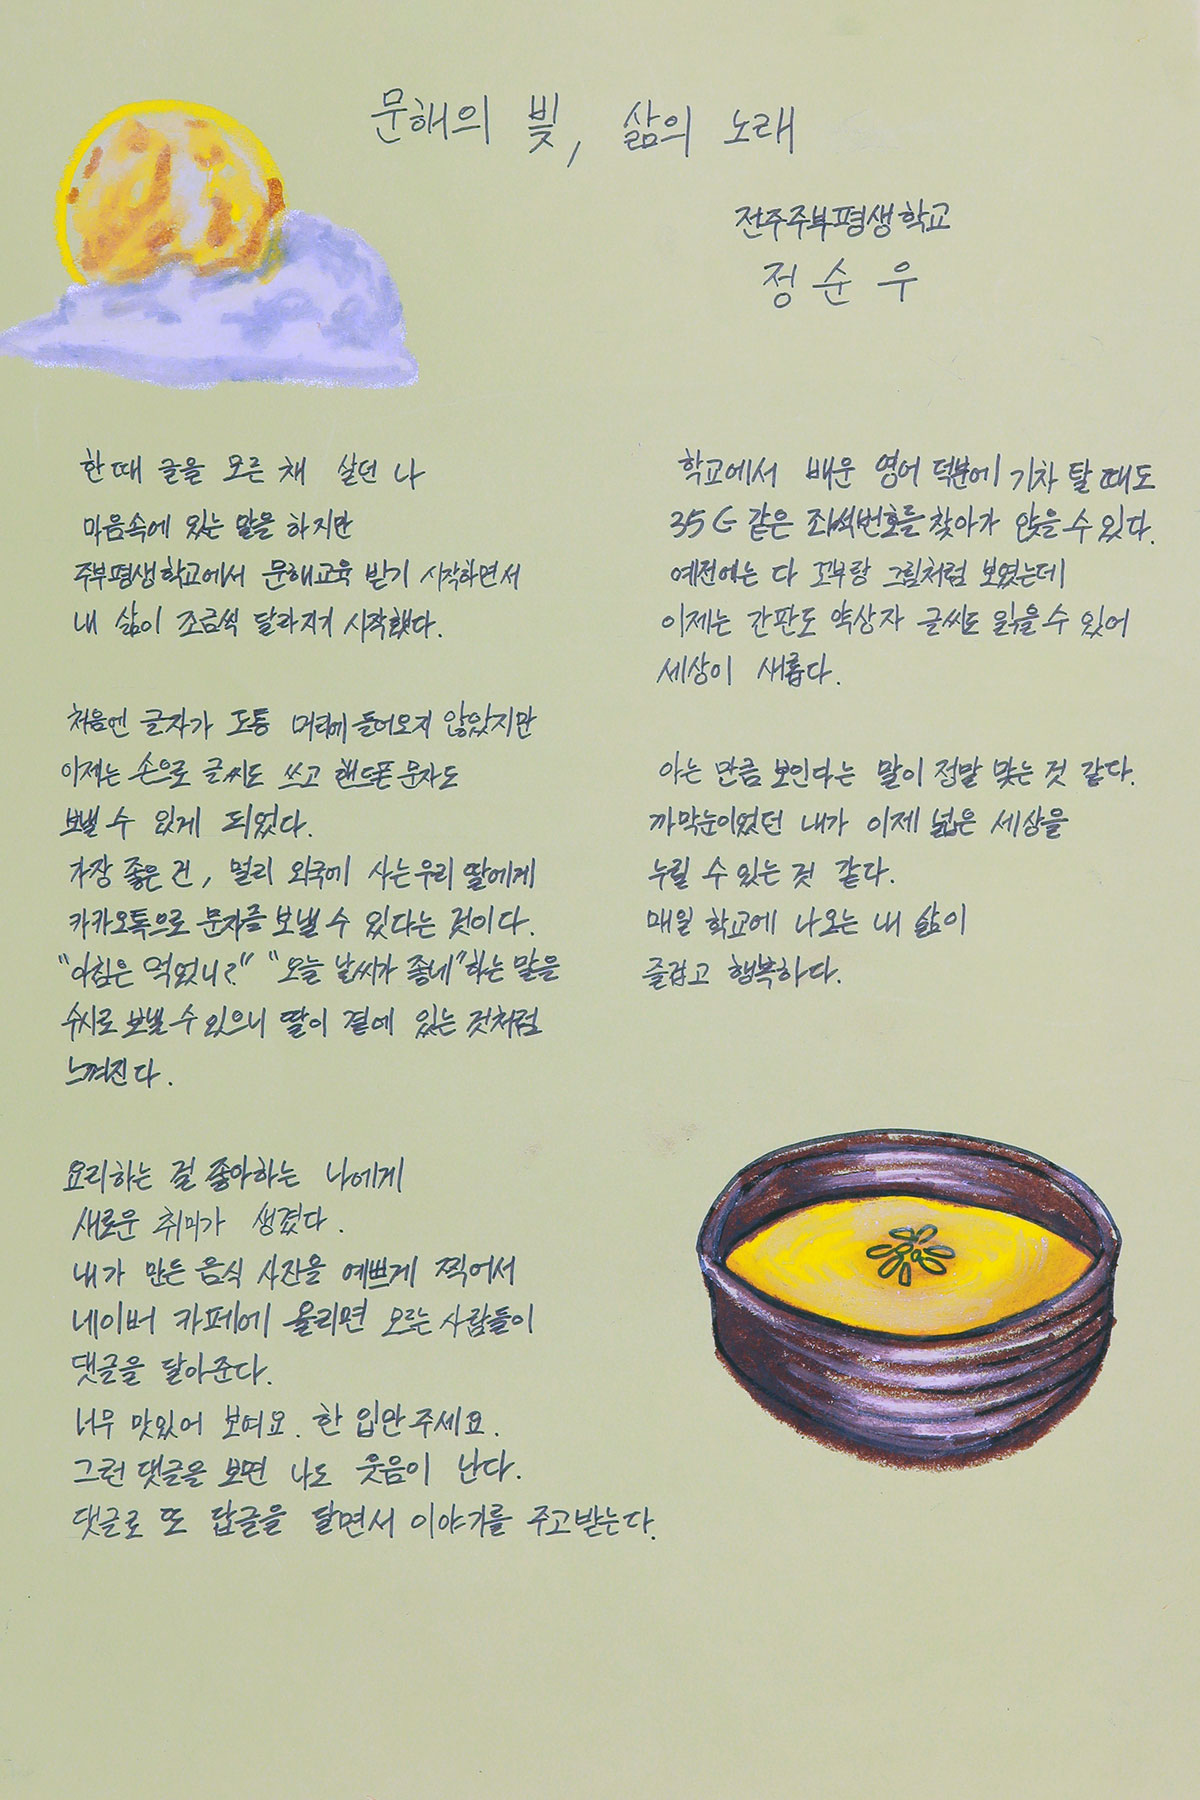 문해의 빛, 삶의 노래
전주주부평생학교
정순우
한때 글을 모른 채 살던 나
마음속에 있는 말을 하지만
주부평생학교에서 문해교육 받기 시작하면서
내 삶이 조금씩 달라지기 시작했다.
처음엔 글자가 도통 머리에 들어오지 않았지만
이제는 손으로 글씨도 쓰고 핸드폰 문자도
보낼 수 있게 되었다.
가장 좋은 건, 멀리 외국에 사는 우리 딸에게
카카오톡으로 문자를 보낼 수 있다는 것이다.
"아침은 먹었니?" "오늘 날씨가 좋네"하는 말을
수시로 보낼 수 있으니 딸이 곁에 있는 것처럼
느껴진다.
요리하는 걸 좋아하는 나에게
새로운 취미가 생겼다.
내가 만든 음식 사진을 예쁘게 찍어서
네이버 카페에 올리면 모르는 사람들이
댓글을 달아준다.
너무 맛있어 보여요. 한 입만 주세요.
그런 댓글을 보면 나도 웃음이 난다.
댓글로 또 답글을 달면서 이야기를 주고받는다.
학교에서 배운 영어 덕분에 기차 탈 때도
35 G 같은 좌석번호를 찾아가 앉을 수 있다.
예전에는 다 꼬부랑 그림처럼 보였는데
이제는 간판도 약상자 글씨도 읽을 수 있어
세상이 새롭다.
아는 만큼 보인다는 말이 정말 맞는 것 같다.
까막눈이었던 내가 이제 넓은 세상을
누릴 수 있는 것 같다.
매일 학교에 나오는 내 삶이
즐겁고 행복하다.